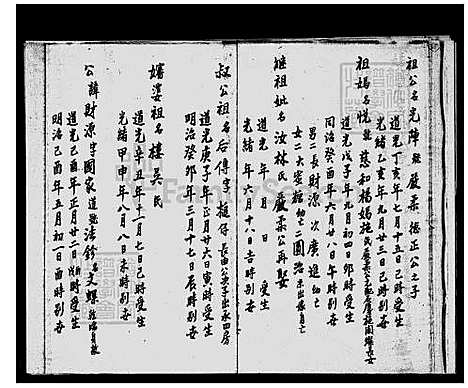 祖公名光陣諡嚴柔 德正公之子
道光丁亥年七月十五日己時受生
光緒乙亥年元月廿三日己時別世
祖媽名悅諡慈和楊媽施氏
道光戊子年元月初四日卯時受生
同治癸酉年六月廿八日午時別世
男二長財源 次廣進
女二大 二
繼祖妣名汝林氏嚴柔公再娶
道光 年 月 日 受生
光緒 年六月十八日吉時別世
叔公祖名後傳字
道光庚子年正月廿六日寅時受生
明治癸卯年三月十七日辰時別世
嬸婆祖名樓吳氏
道光辛丑年十一月七日己時受生
光緒甲申年八月八日未時別世
公諱財源字國家道號法鈴名文螺
道光己酉年正月廿二日 時受生
明治己酉年五月初一日酉時別世